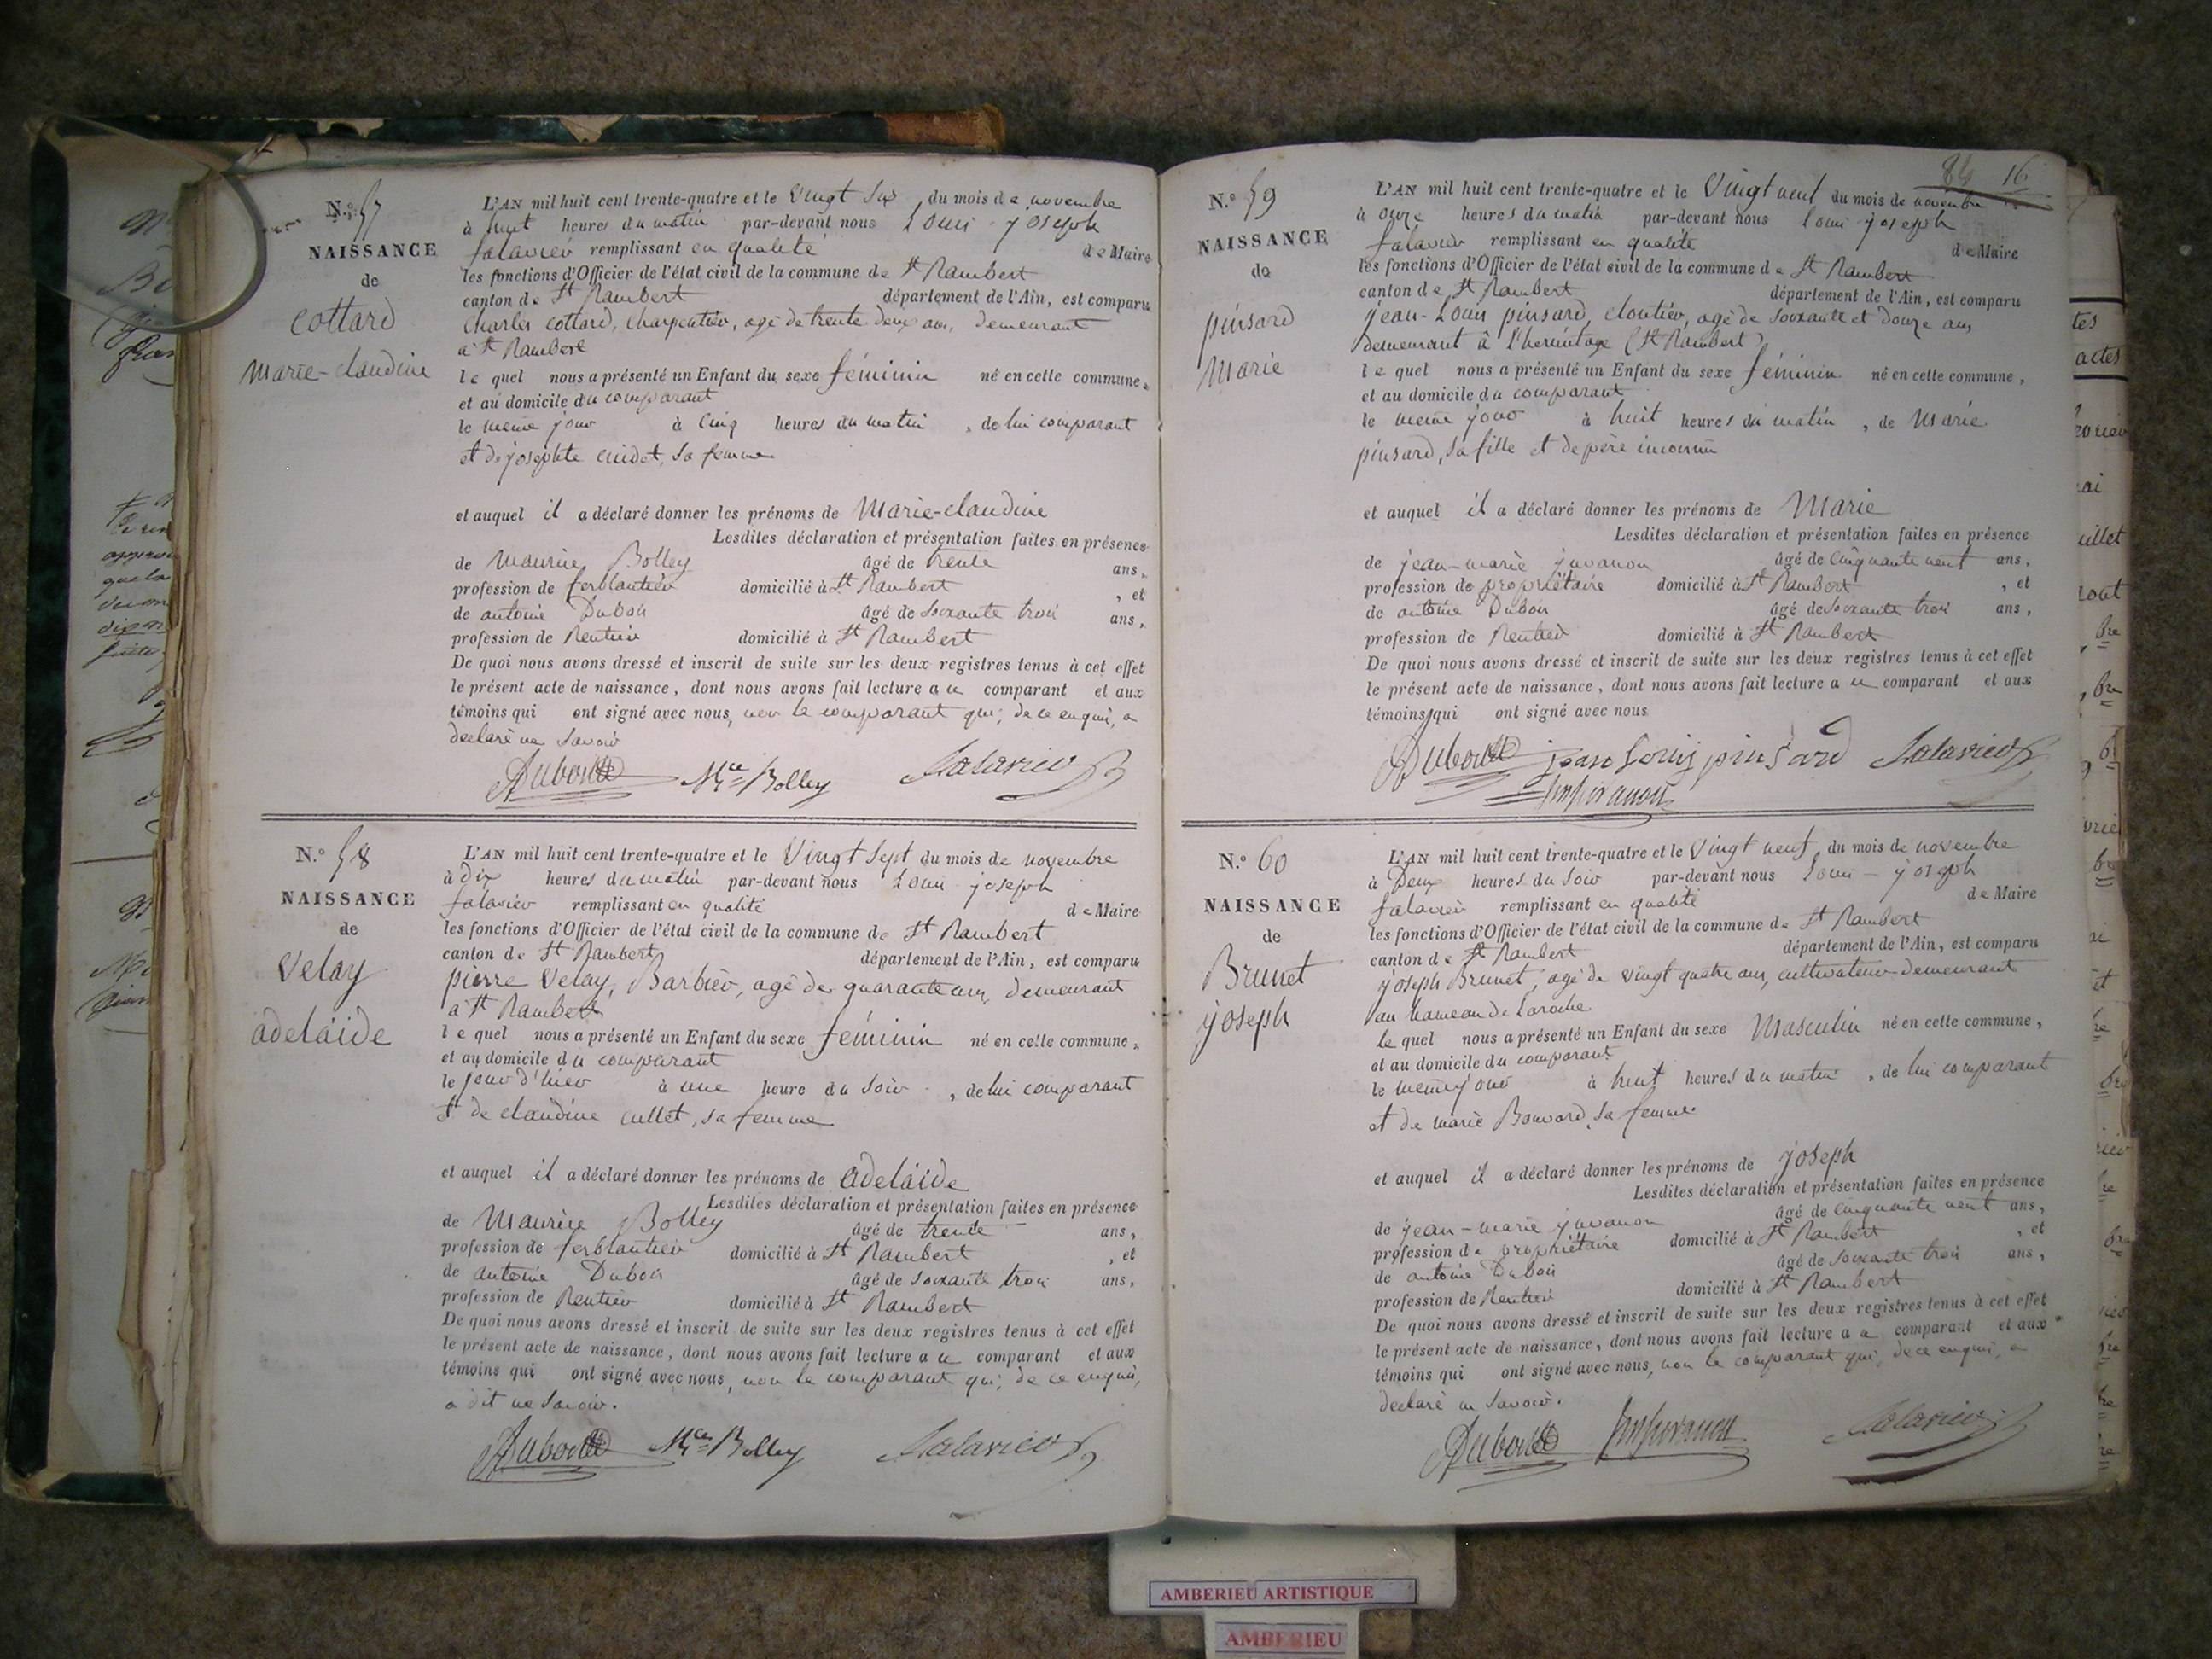 N.º 57
NAISSANCE
de
cottard
marie-claudine
L'AN mil huit cent trente-quatre et le vingt six du mois de novembre
à huit heures du matin par-devant nous Louis joseph
falavier remplissant en qualité de Maire
les fonctions d'Officier de l'état civil de la commune de St Rambert
canton de St Rambert département de l'Ain, est comparu
Charles cottard, charpentier, agé de trente deux ans, demeurant
à St Rambert
le quel nous a présenté un Enfant du sexe féminin né en cette commune,
et au domicile du comparant
le meme jour à cinq heures du matin, de lui comparant
et de josephte cuidet, sa femme
et auquel il a déclaré donner les prénoms de Marie-claudine
Lesdites déclaration et présentation faites en présence
de Maurice Bolley âgé de trente ans,
profession de ferblantier domicilié à St Rambert, et
de antoine Dubois âgé de soixante trois ans,
profession de Rentier domicilié à St Rambert
De quoi nous avons dressé et inscrit de suite sur les deux registres tenus à cet effet
le présent acte de naissance, dont nous avons fait lecture au comparant et aux
témoins qui ont signé avec nous, non le comparant qui, de ce enquis, a
declaré ne savoir
Dubois Mce Bolley falavier
N.º 58
NAISSANCE
de
Velay
adelaide
L'AN mil huit cent trente-quatre et le vingt sept du mois de novembre
à dix heures du matin par-devant nous Louis joseph
falavier remplissant en qualité de Maire
les fonctions d'Officier de l'état civil de la commune de St Rambert
canton de St Rambert département de l'Ain, est comparu
pierre Velay, Barbier, agé de quarante ans, demeurant
à St Rambert
le quel nous a présenté un Enfant du sexe féminin né en cette commune,
et au domicile du comparant
le jour d'hier à une heure du soir, de lui comparant
et de claudine cullet, sa femme
et auquel il a déclaré donner les prénoms de adelaide
Lesdites déclaration et présentation faites en présence
de Maurice Bolley âgé de trente ans,
profession de ferblantier domicilié à St Rambert, et
de antoine Dubois âgé de soixante trois ans,
profession de Rentier domicilié à St Rambert
De quoi nous avons dressé et inscrit de suite sur les deux registres tenus à cet effet
le présent acte de naissance, dont nous avons fait lecture au comparant et aux
témoins qui ont signé avec nous, non le comparant qui, de ce enquis,
a dit ne savoir.
Dubois Mce Bolley falavier
84 16
N.º 59
NAISSANCE
de
pinsard
Marie
L'AN mil huit cent trente-quatre et le vingt neuf du mois de novembre
à onze heures du matin par-devant nous Louis joseph
falavier remplissant en qualité de Maire
les fonctions d'Officier de l'état civil de la commune de St Rambert
canton de St Rambert département de l'Ain, est comparu
jean-Louis pinsard, cloutier, agé de soixante et douze ans
demeurant à l'hermitage (St Rambert)
le quel nous a présenté un Enfant du sexe féminin né en cette commune,
et au domicile du comparant
le meme jour à huit heures du matin, de Marie
pinsard, sa fille et de père inconnu
et auquel il a déclaré donner les prénoms de Marie
Lesdites déclaration et présentation faites en présence
de jean-marie juvanon âgé de cinquante neuf ans,
profession de propriétaire domicilié à St Rambert, et
de antoine Dubois âgé de soixante trois ans,
profession de Rentier domicilié à St Rambert
De quoi nous avons dressé et inscrit de suite sur les deux registres tenus à cet effet
le présent acte de naissance, dont nous avons fait lecture au comparant et aux
témoins qui ont signé avec nous
Dubois jean louis pinsard falavier
juvanon
N.º 60
NAISSANCE
de
Brunet
joseph
L'AN mil huit cent trente-quatre et le vingt neuf du mois de novembre
à Deux heures du soir par-devant nous Louis - joseph
falavier remplissant en qualité de Maire
les fonctions d'Officier de l'état civil de la commune de St Rambert
canton de St Rambert département de l'Ain, est comparu
joseph Brunet, agé de vingt quatre ans, cultivateur demeurant
au hameau de Laroche
le quel nous a présenté un Enfant du sexe Masculin né en cette commune,
et au domicile du comparant
le meme jour à huit heures du matin, de lui comparant
et de marie Bonvard, sa femme
et auquel il a déclaré donner les prénoms de joseph
Lesdites déclaration et présentation faites en présence
de jean-marie juvanon âgé de cinquante neuf ans,
profession de propriétaire domicilié à St Rambert, et
de antoine Dubois âgé de soixante trois ans,
profession de Rentier domicilié à St Rambert
De quoi nous avons dressé et inscrit de suite sur les deux registres tenus à cet effet
le présent acte de naissance, dont nous avons fait lecture au comparant et aux
témoins qui ont signé avec nous, non le comparant qui, de ce enquis, a
declaré ne savoir.
Dubois juvanon falavier
AMBERIEU ARTISTIQUE
AMBERIEU